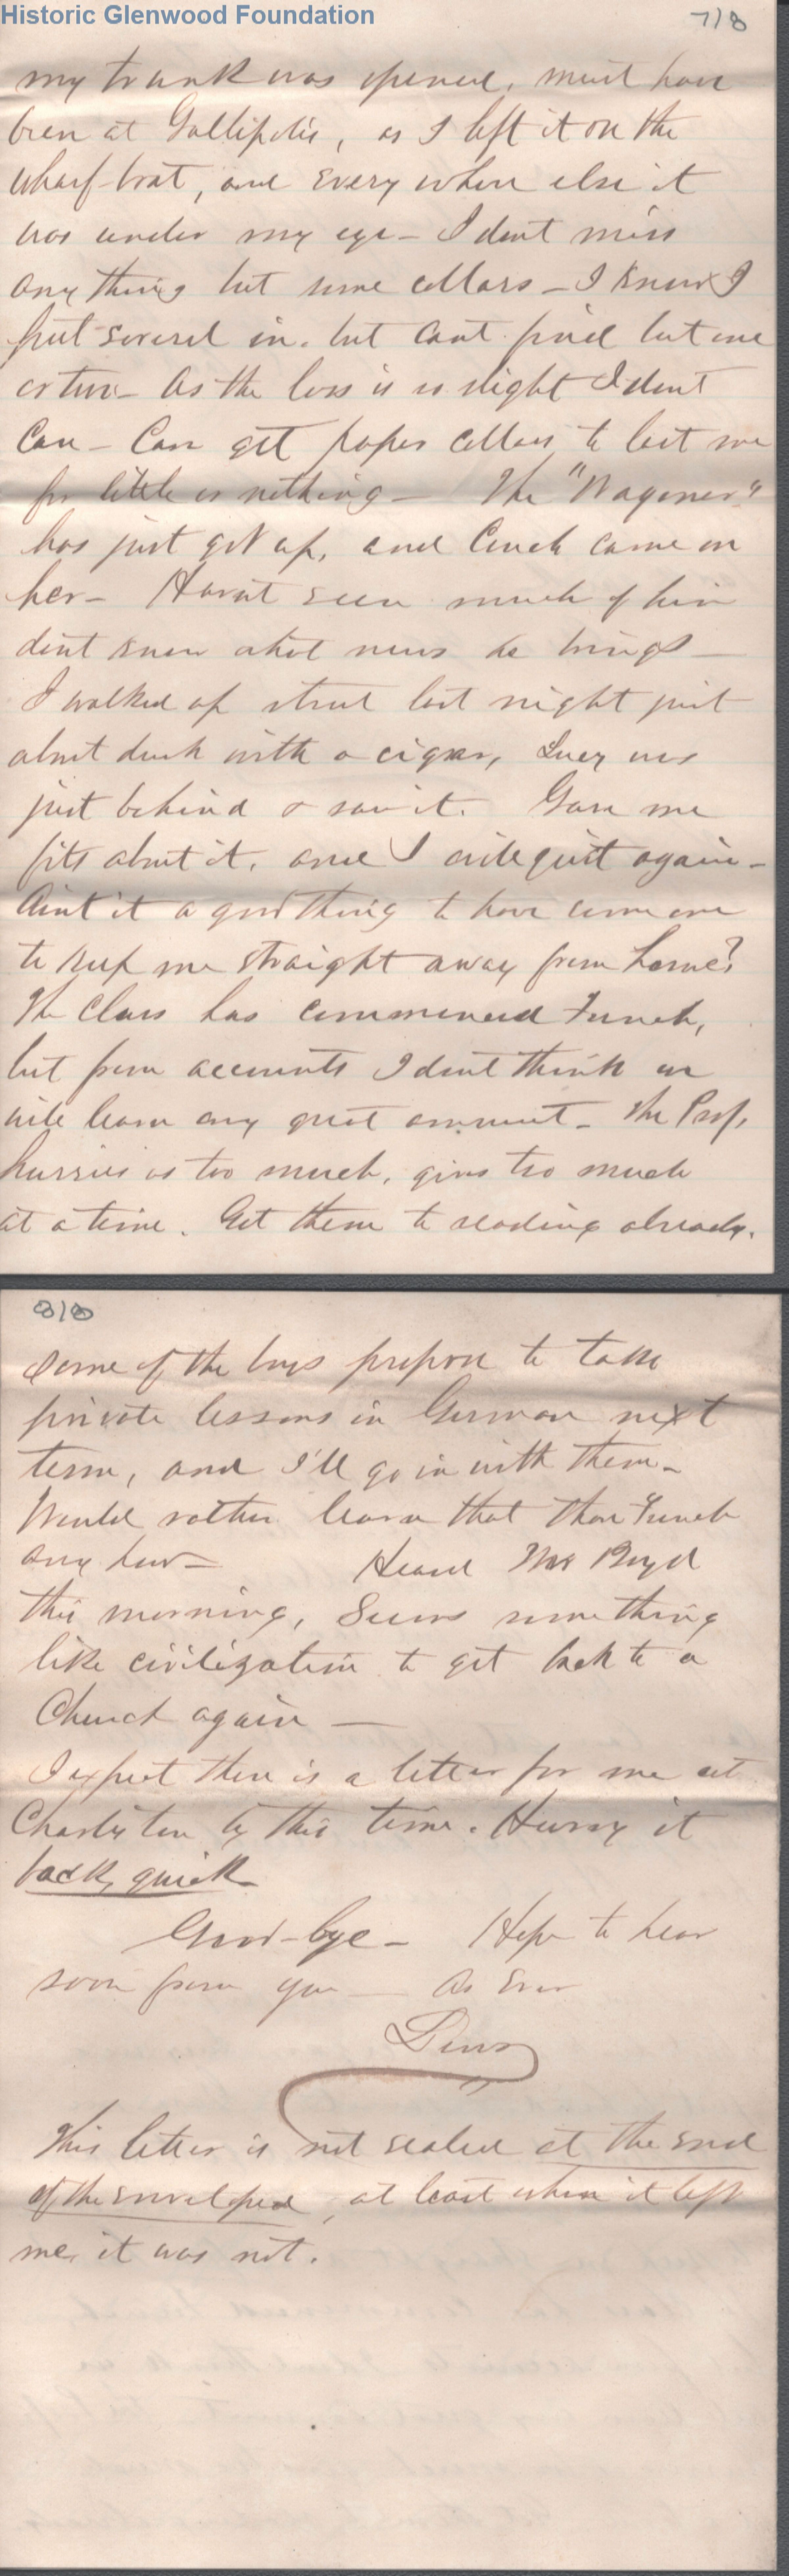 Historic Glenwood Foundation
7/8
my trunk was opened, must have
been at Gallipolis, as I left it on the
wharf-boat, and every where else it
was under my eye - I dont miss
any thing but some collars - I know I
put several in, but cant find but one
or two - As the loss is so slight I dont
Care - Can get paper collars to last me
for little or nothing - The "Wagoner"
has just got up, and Couch came on
her - Havnt seen much of him
dont know what news he brings -
I walked up street last night just
about dusk with a cigar, Lucy was
just behind & saw it. Gave me
fits about it, and I will quit again -
Aint it a good thing to have some one
to keep me straight away from home?
The Class has commenced French,
but from accounts I dont think we
will learn any great amount - The Prof.
hurries us too much, gives too much
at a time. Got them to reading already.
8/8
Some of the boys propose to take
private lessons in German next
term, and I'll go in with them -
Would rather learn that than French
any how - Heard Mr Boyd
this morning, Seems something
like civilization to get back to a
Church again -
I expect there is a letter for me at
Charleston by this time. Hurry it
back, quick
Good-bye - Hope to hear
soon from you - As Ever
This letter is not sealed at the end
of the enveloped, at least when it left
me, it was not.